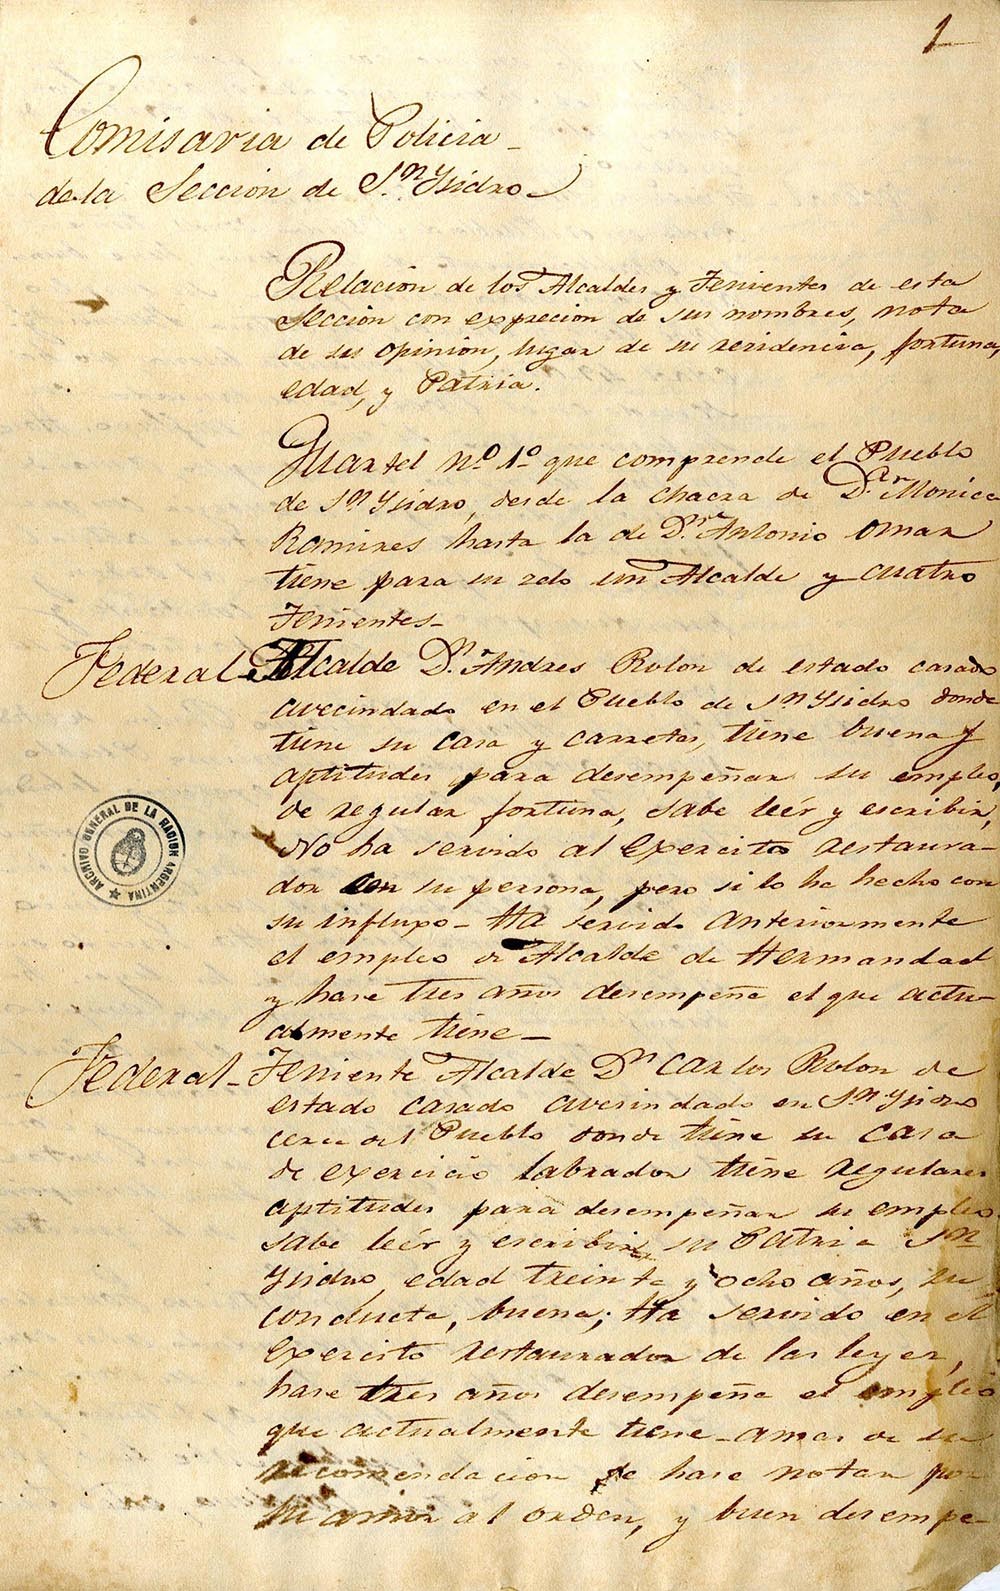 1
Comisaria de Policia
de la Seccion de Sn. Ysidro
Relacion de los Alcaldes y Tenientes de esta
Seccion con exprecion de sus nombres, nota
de su opinion, lugar de su residencia, fortuna,
edad, y Patria.
Quartel No. 1o. que comprende el Pueblo
de Sn Ysidro, desde la chacra de Da. Monica
Ramires hasta la de Dn. Antonio Omar
tiene para su zelo un Alcalde y cuatro
Tenientes-
Federal- Alcalde Dn. Andres Rolon de estado casado
avecindado en el Pueblo de Sn Ysidro donde
tiene su casa y carretas, tiene buenas
aptitudes para desempeñar su empleo,
de regular fortuna, sabe leér y escribir,
No ha servido al Exercito restaura-
dor en su persona, pero si lo ha hecho con
su influxo- Ha servido anteriormente
el empleo de Alcalde de Hermandad
y hase tres años desempeña el que actu-
almente tiene-
Federal- Teniente Alcalde Dn Carlos Rolon de
estado casado avesindado en Sn Ysidro
cerca del Pueblo donde tiene su casa
de exercicio labrador tiene regulares
aptitudes para desempeñar su empleo
sabe leér y escribir, su Patria Sn
Ysidro, edad treinta y ocho años, su
conducta, buena; Ha servido en el
Exercito restaurador de las leyes,
hase tres años desempeña el empleo
que actualmente tiene- amas de su
recomendacion se hase notar por
su amor al orden, y buen desempe-
ARCHIVO GENERAL DE LA NACION ARGENTINA